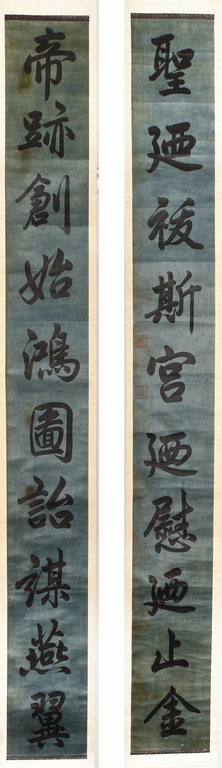 聖廼祓斯宮廼慰廼止金
帝跡創始鴻圖詒謀燕翼